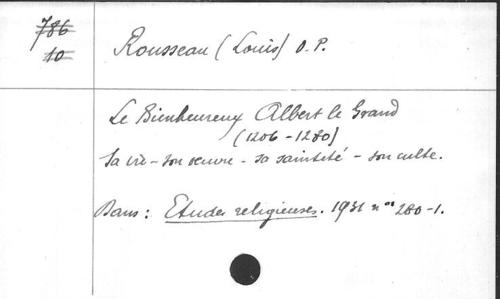 786
10
Rousseau (Louis) O.P.
Le Bienheureux Albert le Grand
(1206-1280)
Sa vie - son œuvre - sa sainteté - son culte.
Dans : Etudes religieuses. 1931 nos 280-1.